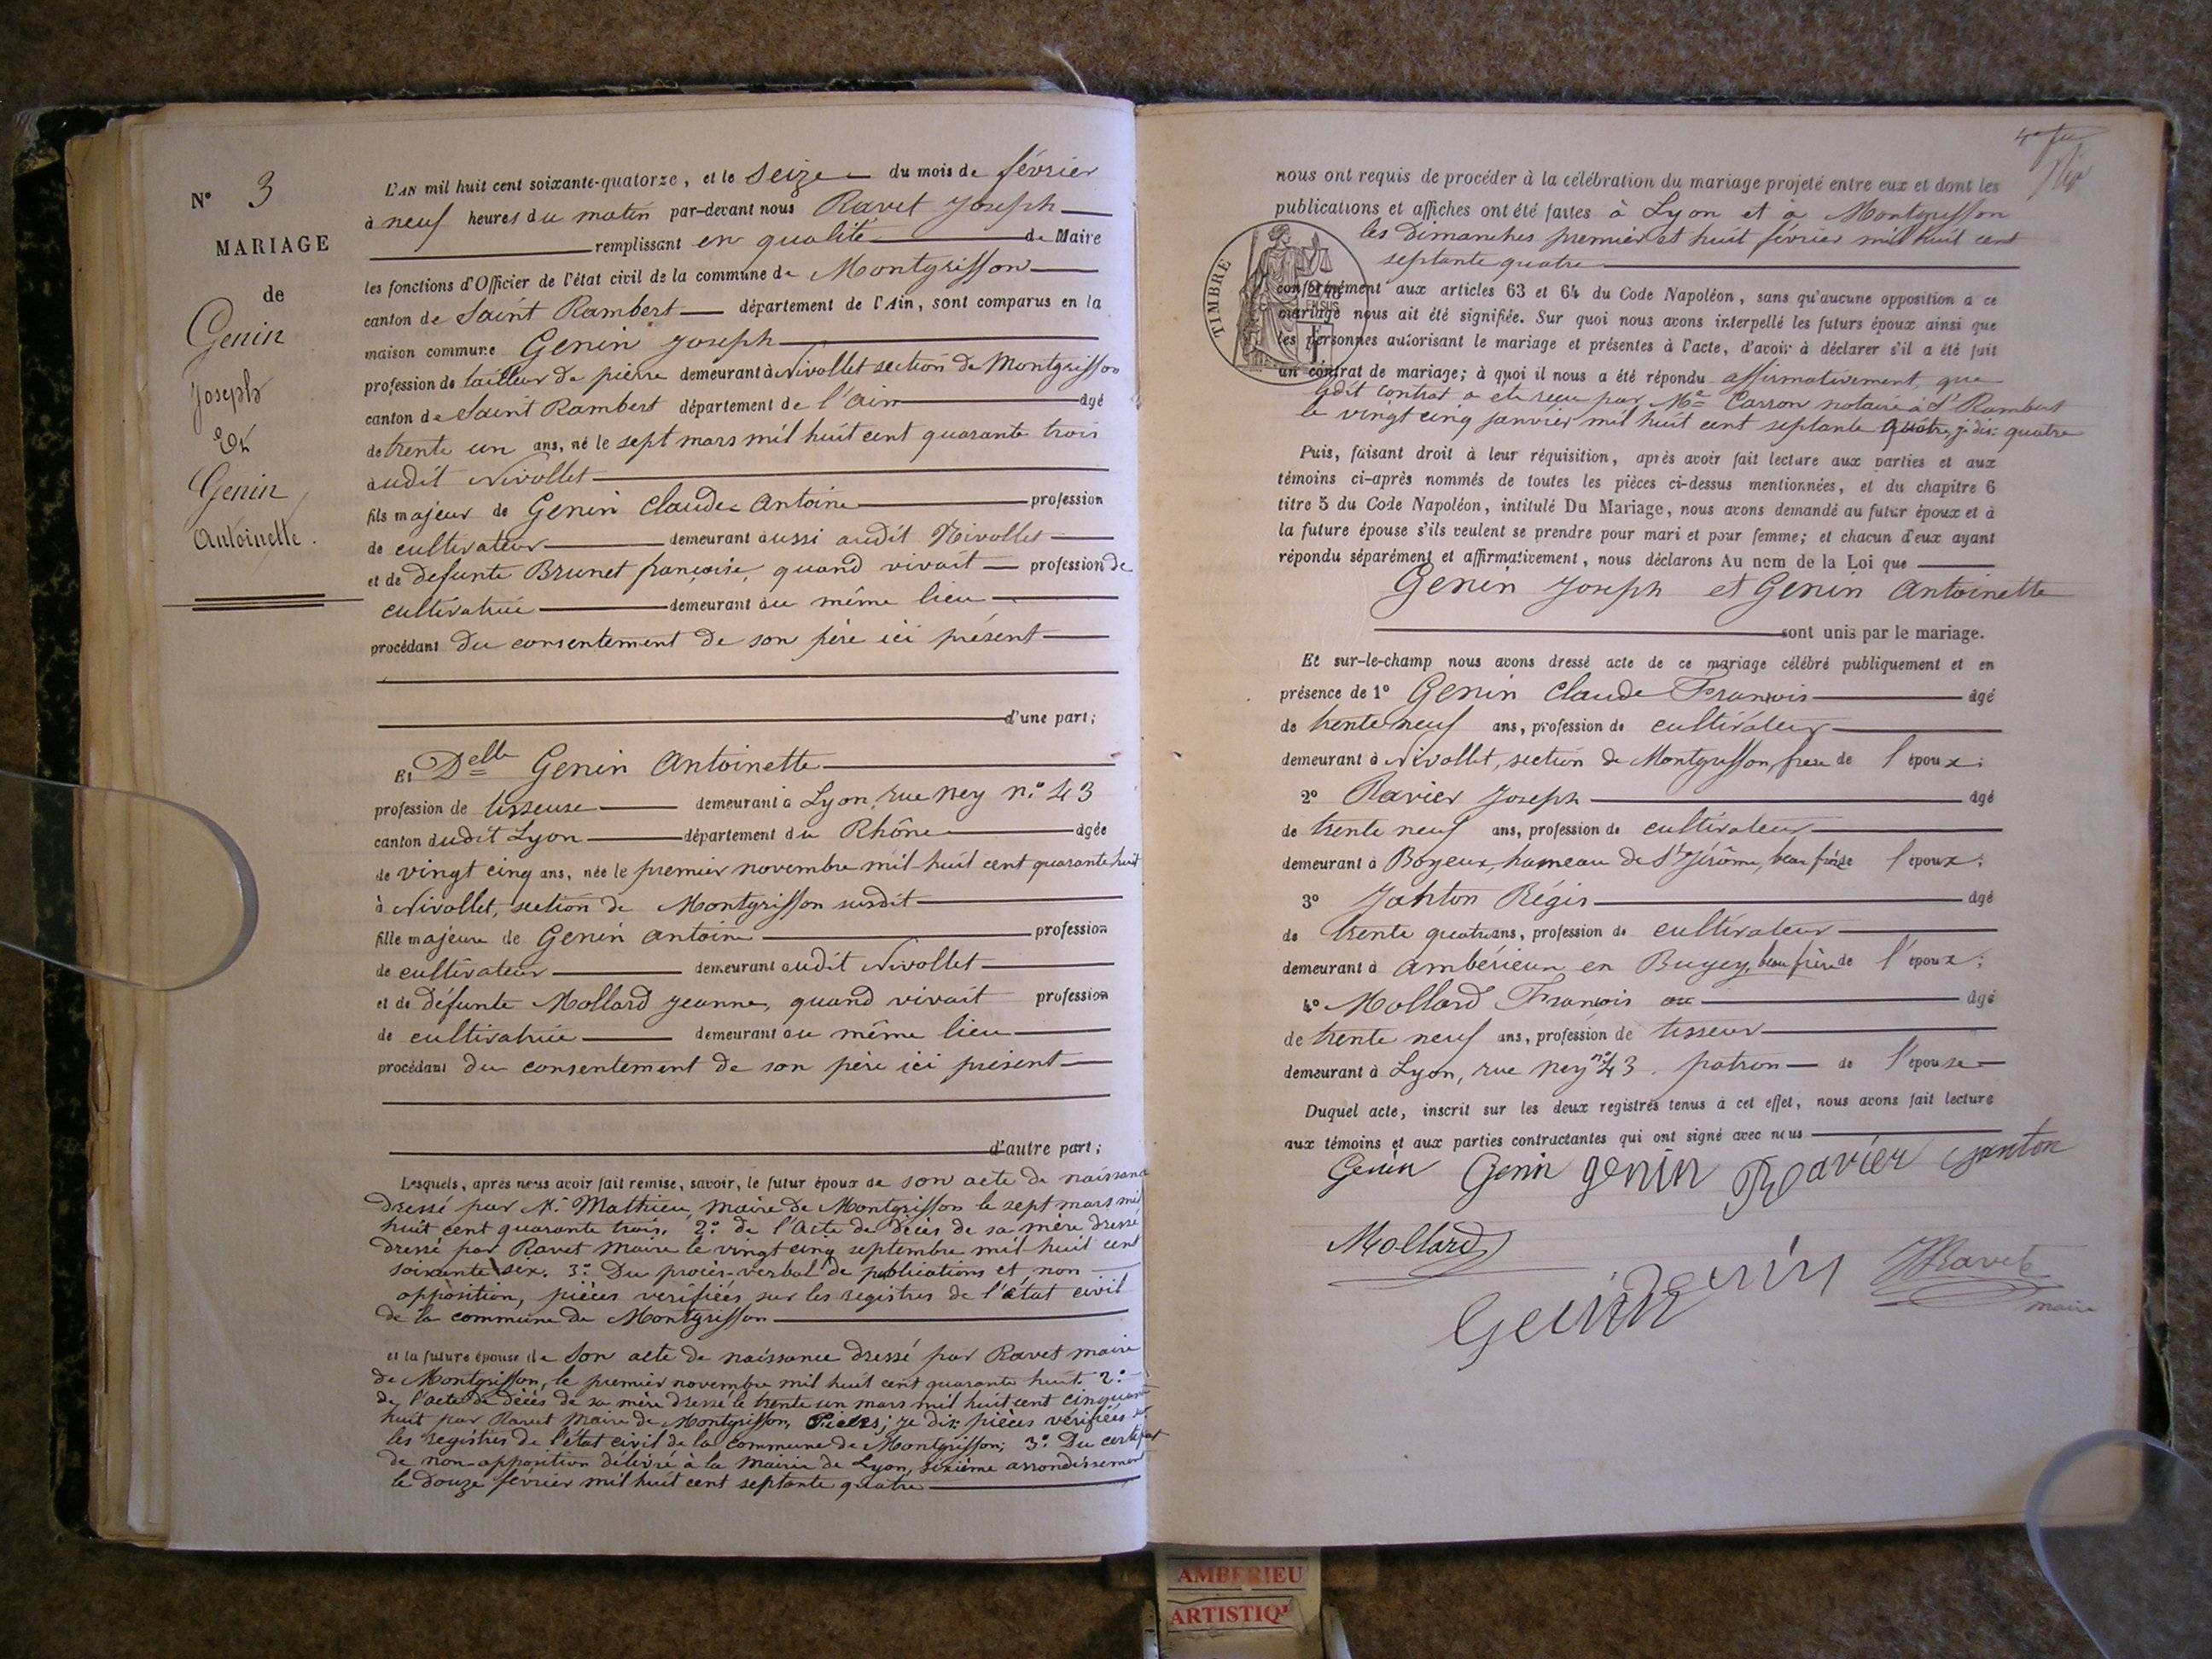 N° 3
MARIAGE
de
Genin
Joseph
Et
Genin
Antoinette.
L'AN mil huit cent soixante-quatorze, et le seize du mois de février
à neuf heures du matin par-devant nous Ravet Joseph
remplissant en qualité de Maire
les fonctions d'Officier de l'état civil de la commune de Montgriffon
canton de Saint Rambert département de l'Ain, sont comparus en la
maison commune Genin Joseph
profession de tailleur de pierre demeurant à Nivollet section de Montgriffon
canton de Saint Rambert département de l'ain âgé
de trente un ans, né le sept mars mil huit cent quarante trois
audit Nivollet
fils majeur de Genin Claude Antoine profession
de cultivateur demeurant aussi audit Nivollet
et de defunte Brunet françoise, quand vivait profession de
cultivatrice demeurant au même lieu
procédant du consentement de son père ici présent
d'une part;
Et Delle Genin Antoinette
profession de tisseuse demeurant à Lyon, rue Ney n.° 43
canton dudit Lyon département du Rhône âgée
de vingt cinq ans, née le premier novembre mil huit cent quarante huit
à Nivollet, section de Montgriffon susdit
fille majeure de Genin Antoine profession
de cultivateur demeurant audit Nivollet
et de défunte Mollard Jeanne, quand vivait profession
de cultivatrice demeurant au même lieu
procédant du consentement de son père ici présent
d'autre part;
Lesquels, après nous avoir fait remise, savoir, le futur époux de son acte de naissance
dressé par M. Mathieu, Maire de Montgriffon le sept mars mil
huit cent quarante trois. 2.° de l'Acte de décès de sa mère dressé
dressé par Ravet Maire le vingt cinq septembre mil huit cent
soixante six. 3.° Du procès-verbal de publications et non
opposition, pièces vérifiées sur les registres de l'état civil
de la commune de Montgriffon
et la future épouse de son acte de naissance dressé par Ravet maire
de Montgriffon, le premier novembre mil huit cent quarante huit. 2.°
de l'acte de décès de sa mère dressé le trente un mars mil huit cent cinquante
huit par Ravet Maire de Montgriffon, Pièces; je dis: pièces vérifiées sur
les registres de l'état civil de la commune de Montgriffon; 3.° Du certificat
de non-opposition délivré à la Mairie de Lyon, sixième arrondissement
le douze février mil huit cent septante quatre
nous ont requis de procéder à la célébration du mariage projeté entre eux et dont les
publications et affiches ont été faites à Lyon et à Montgriffon
les Dimanches premier et huit février mil huit cent
septante quatre
TIMBRE
conformément aux articles 63 et 64 du Code Napoléon, sans qu'aucune opposition à ce
mariage nous ait été signifiée. Sur quoi nous avons interpellé les futurs époux ainsi que
les personnes autorisant le mariage et présentes à l'acte, d'avoir à déclarer s'il a été fait
un contrat de mariage; à quoi il nous a été répondu affirmativement, que
ledit contrat a été reçu par Me Carron notaire à St Rambert
le vingt cinq janvier mil huit cent septante quatre, je dis: quatre
Puis, faisant droit à leur réquisition, après avoir fait lecture aux parties et aux
témoins ci-après nommés de toutes les pièces ci-dessus mentionnées, et du chapitre 6
titre 5 du Code Napoléon, intitulé Du Mariage, nous avons demandé au futur époux et à
la future épouse s'ils veulent se prendre pour mari et pour femme; et chacun d'eux ayant
répondu séparément et affirmativement, nous déclarons Au nom de la Loi que
Genin Joseph et Genin Antoinette
sont unis par le mariage.
Et sur-le-champ nous avons dressé acte de ce mariage célébré publiquement et en
présence de 1° Genin Claude François âgé
de trente neuf ans, profession de cultivateur
demeurant à Nivollet, section de Montgriffon, frère de l'époux;
2° Ravier Joseph âgé
de trente neuf ans, profession de cultivateur
demeurant à Boyeux, hameau de St Jérôme, beau frère l'époux;
3° Janton Régis âgé
de trente quatre ans, profession de cultivateur
demeurant à Ambérieux en Bugey, beau frère de l'époux;
4° Mollard François âgé
de trente neuf ans, profession de tisseur
demeurant à Lyon, rue Ney n.° 43. patron de l'épouse
Duquel acte, inscrit sur les deux registres tenus à cet effet, nous avons fait lecture
aux témoins et aux parties contractantes qui ont signé avec nous
Genin Genin genin Ravier Janton
Mollard Genin JRavet
Genin maire
AMBERIEU
ARTISTIQ